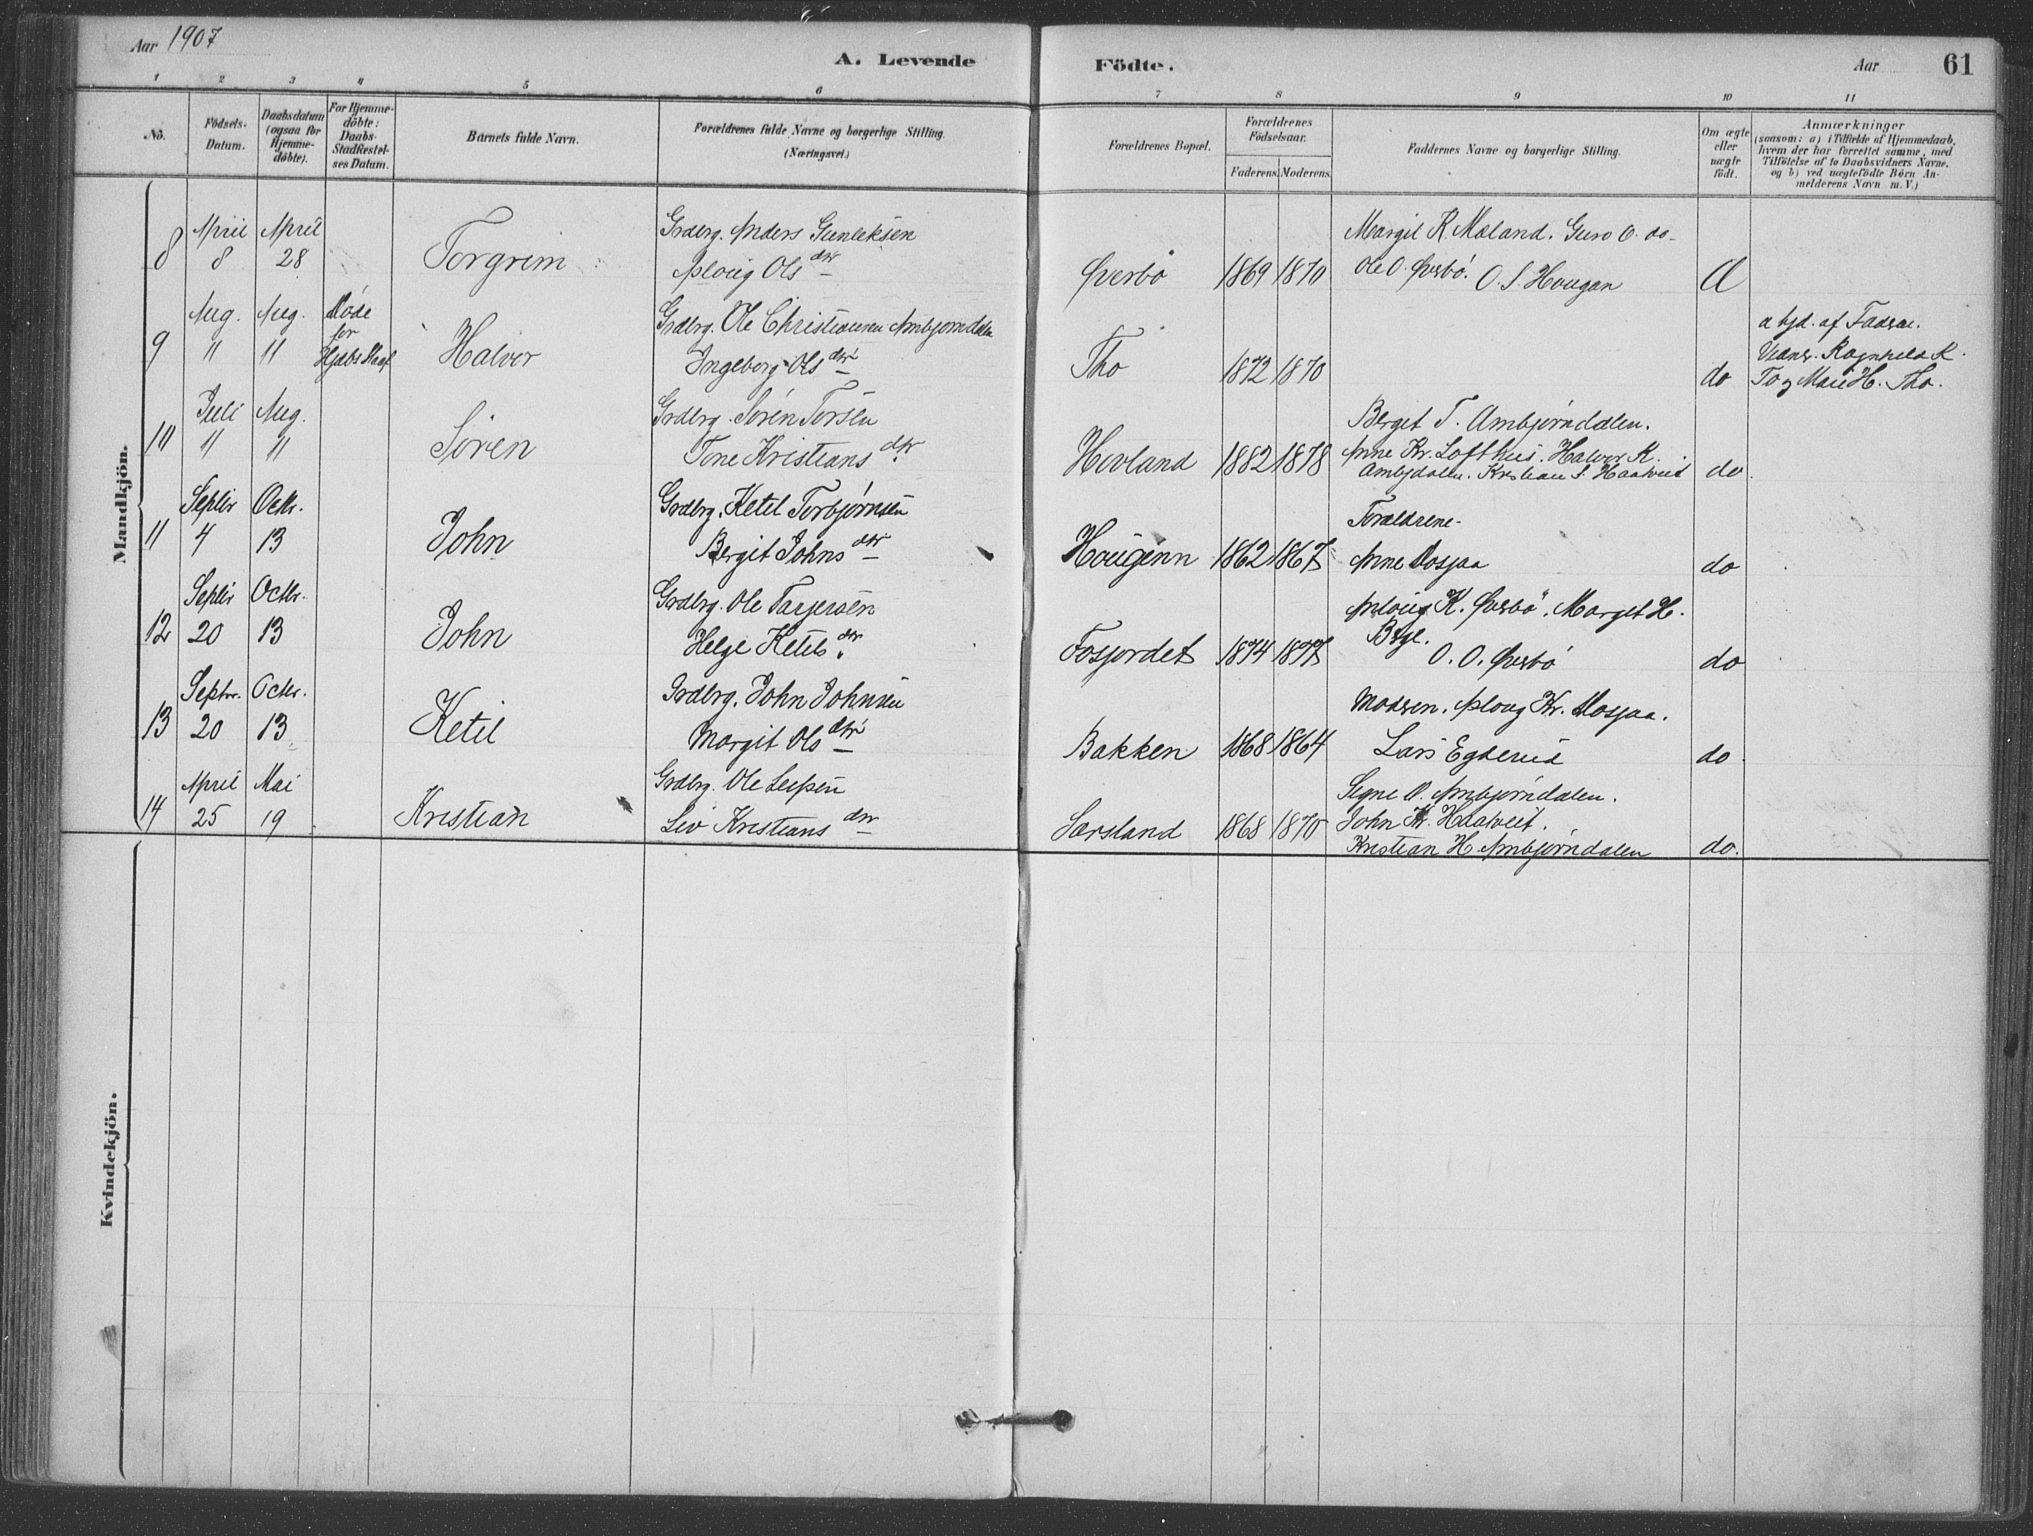 Aar 1907
A. Levende
Födte.
Aar
61
1 2 3 4 5 6 7 8 9 10 11
No.
Födsels-
Datum.
Daabsdatum
(ogsaa for
Hjemme-
döbte).
For Hjemme-
döbte:
Daabs-
Stadfestel-
ses Datum.
Barnets fulde Navn.
Forældrenes fulde Navne og borgerlige Stilling.
(Næringsvei.)
Forældrenes Bopæl.
Forældrenes
Födselsaar.
Faderens. Moderens.
Faddernes Navne og borgerlige Stilling.
Om ægte
eller
uægte
födt.
Anmærkninger
(saasom: a) i Tilfælde af Hjemmedaab,
hvem der har forrettet samme, med
Tilföielse af to Daabsvidners Navne,
og b) ved uægtefödte Börn An-
melderens Navn m. V.)
Mandkjön.
8 April 8 April 28 Torgrim
Grdbrg. Anders Gunleksen
Aloug Ols dtr
Øverbø 1869 1870
Margit K. Moland. Guro O. do-
Ole O. Øverbø. O. S. Hougan
Æ
9 Aug. 11 Aug. 11 Døde før Halvor
Grdbrg. Ole Christiansen Ambjørndalen
Ingeborg Ols dtr
Tho 1872 1870 do
af Fadren.
Ragnhild K.
To og Mari H. Tho.
10 Juli 11 Aug. 11 Søren
Grdbrg. Søren Torsen
Tone Kristians dtr
Hovland 1882 1878
Berget T. Ambjørndalen.
Anne Kr. Lofthus. Halvor K.
Ambjdalen. Kristian S. Haatveit
do.
11 Septbr 4 Octbr. 13 John
Grdbrg. Ketel Torbjørnsen
Bergit Johns dtr
Houginn 1862 1867
Forældrene.
Anne Vosjaa
do
12 Septbr 20 Octbr. 13 John
Grdbrg. Ole Tarjersen
Helge Ketils dtr
Fosjordet 1874 1877
Aloug K. Øverbø. Margit H.
O. O. Øverbø
do
13 Septbr. 20 Octbr. 13 Ketil
Grdbrg. John Johnsen
Margit Ols dtr
Bakken 1868 1864
Modren. Aloug Kr. Vosjaa.
Lars Egderud
do.
14 April 25 Mai 19 Kristian
Grdbrg. Ole Leifsen
Liv Kristians dtr
Sørsland 1868 1870
Signe O. Ambjørndalen.
John Kr. Haatveit.
Kristian H Ambjørndalen
do.
Kvindekjön.